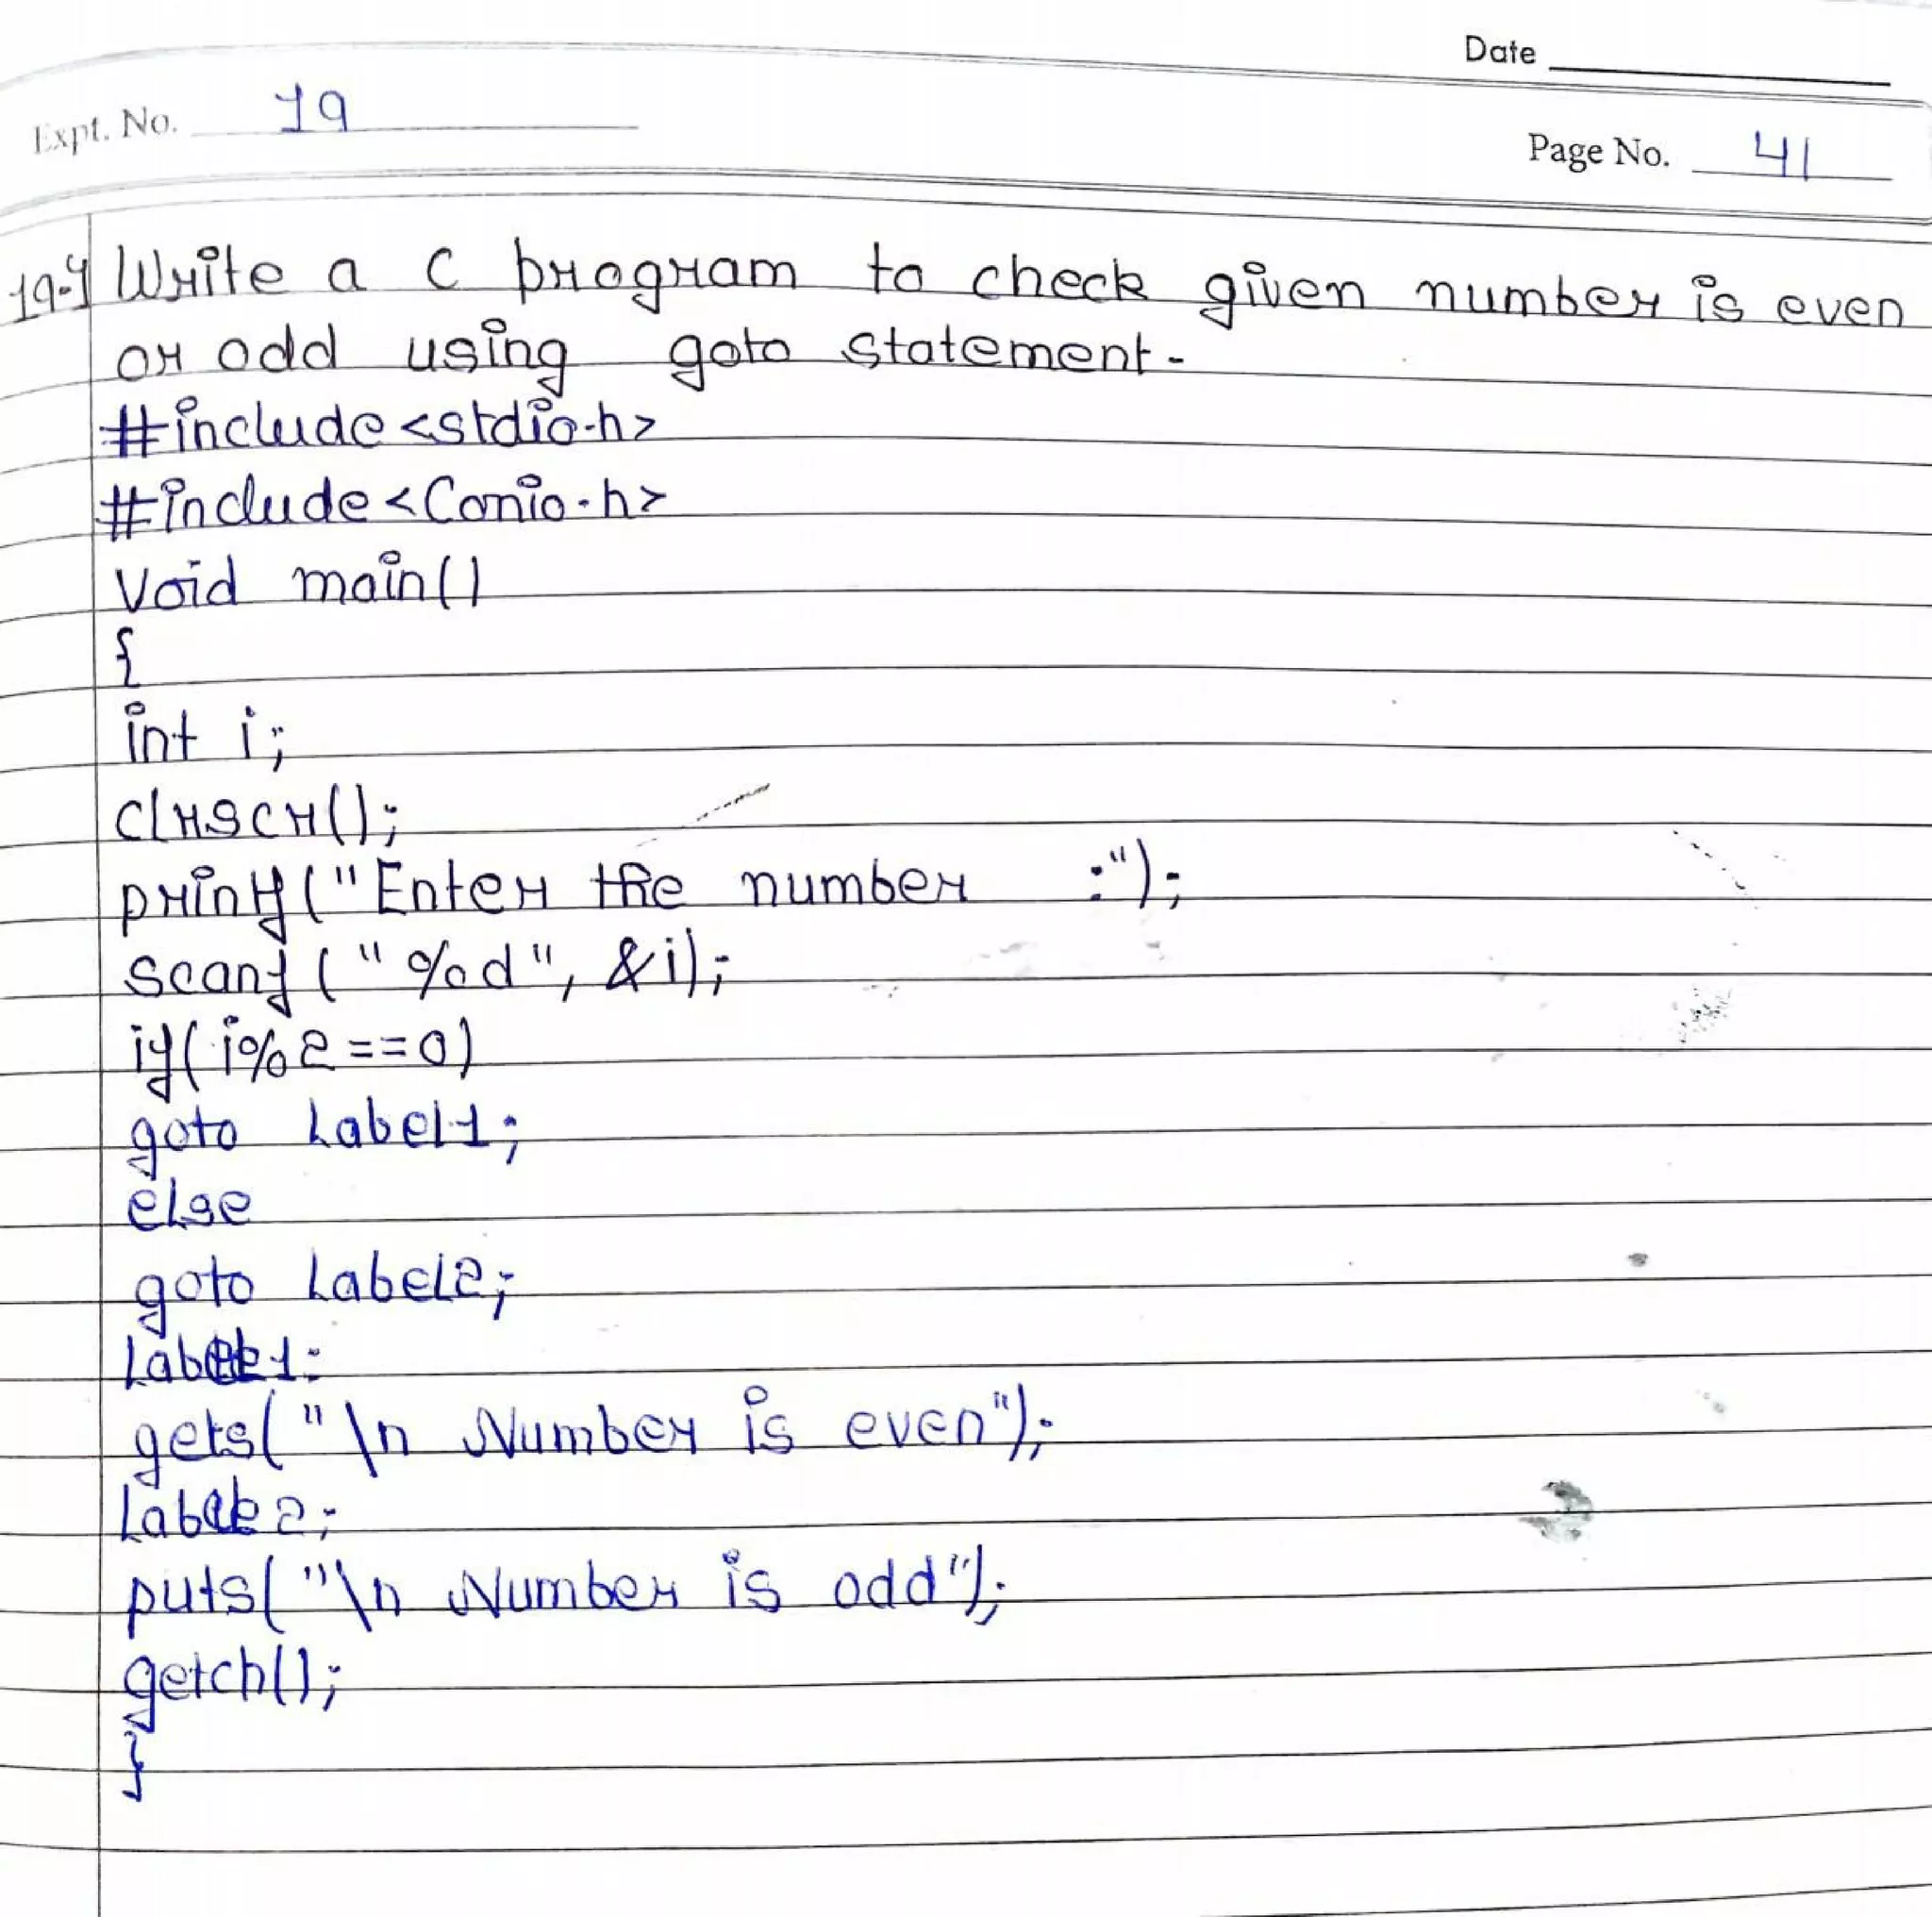 Date
Expt. No. 19
Page No. 41
19.1 Write a C program to check given number is even
or odd using goto statement.
#include<stdio.h>
#include<Conio.h>
Void main()
{
int i;
clrscr();
printf("Enter the number :");
scanf("%d", &i);
if(i%2==0)
goto Label1;
else
goto Label2;
Label1:
gets("\n Number is even");
Label2;
puts("\n Number is odd");
getch();
}